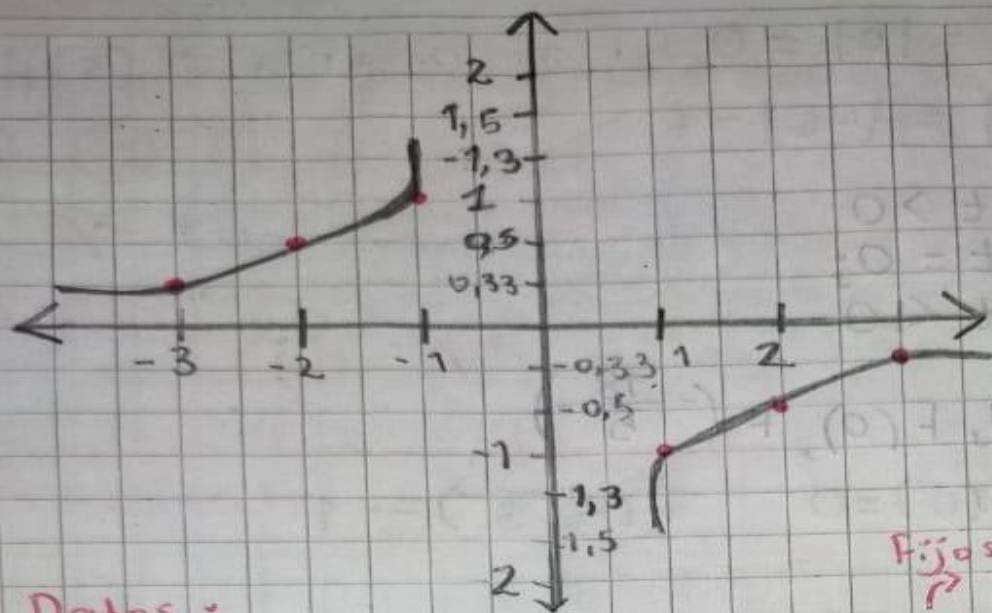 2
1,5
-1,3
1
0,5
0,33
-3 -2 -1 1 2
-0,33
-0,5
-1
-1,3
-1,5
2
Fijos
Datos: